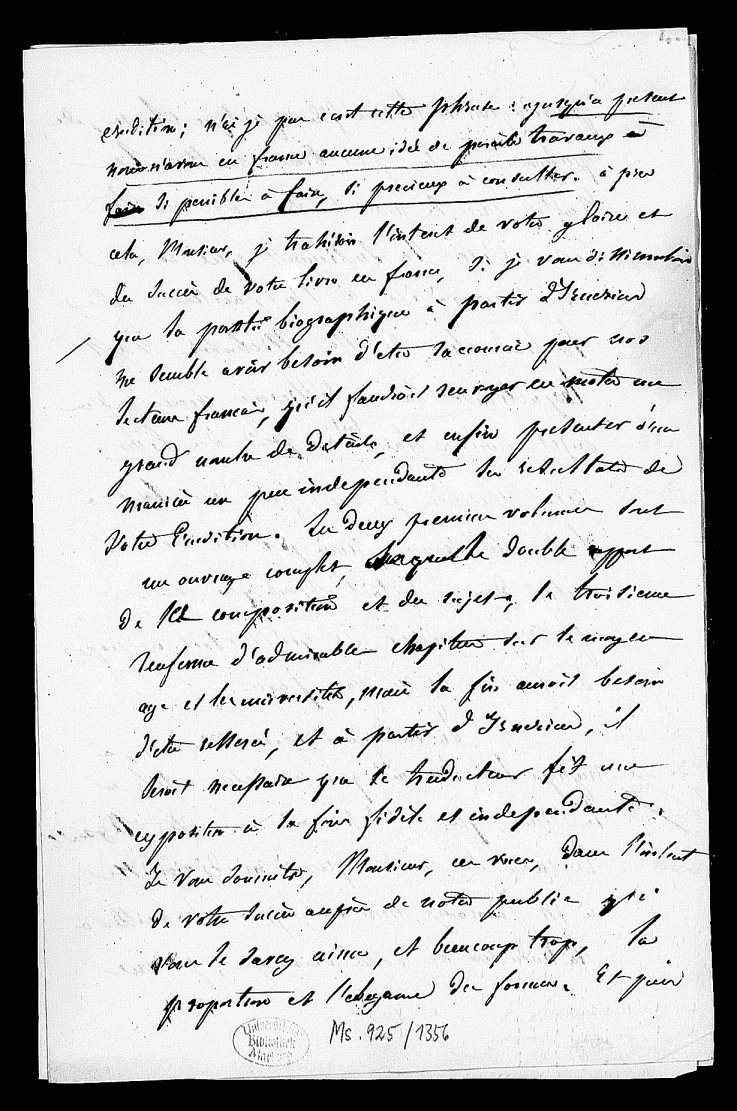 érudition; n'ai je pas écrit cette phrase: "jusqu'à présent
nous n'avons en france aucune idée de pareils travaux
si penibles à faire, si precieux à consulter. à peu
cela, Monsieur, je trahirais l'interet de votre gloire et
du succès de votre livre en france, si je vous dissimulais
que la partie biographique à partir d'Irnerius
me semble avoir besoin d'etre raccourcie pour nos
lecteurs français, qu'il faudroit renvoyer en notes un
grand nombre de details, et enfin presenter d'une
manière un peu independante les resultats de
votre Erudition. Les deux premiers volumes sont
un ouvrage complet, sous le double rapport
de la composition et du sujet, le troisieme
renferme d'admirables chapitres sur le moyen
age et les universités, mais la fin auroit besoin
d'etre resserrée, et à partir d'Irnerius, il
seroit necessaire que le traducteur fît une
exposition à la fois fidèle et independante.
Je vous soumets, Monsieur, ces vues, dans l'interet
de votre succès auprès de notre public qui
vous le savez aime, et beaucoup trop, la
proportion et l'élégance des formes. Et puis
Universitäts
Bibliothek
Marburg
Ms. 925/1356